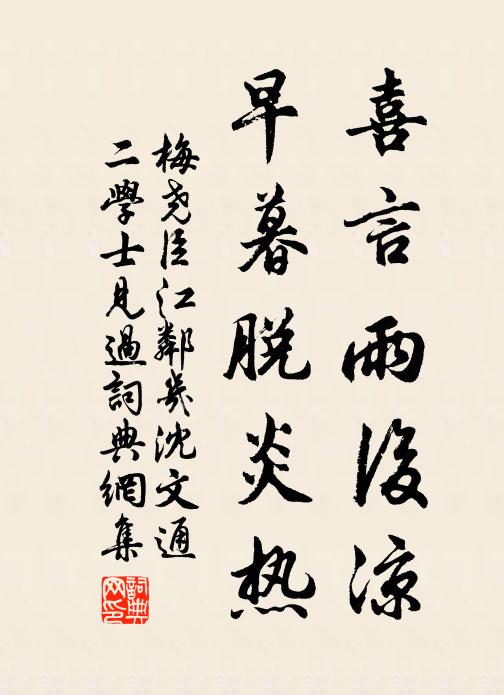 喜言雨後凉
早暮脱炎热
梅尧臣江鄰幾沈文通
二學士見過詞典網集
詞典
网印